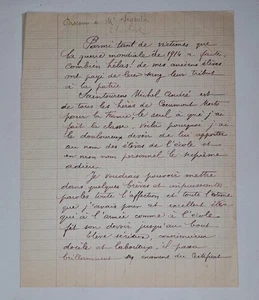 Parmi tant de victimes que
la guerre mondiale de 1914 a faite
combien hélas! de mes anciens élèves
ont payé de leur sang leur tribut
à la patrie
Michel André est
de tous les héros de
pour la France, le seul à que j'ai
fait la classe. Voilà pourquoi j'ai
le douloureux devoir de lui apporter
au nom des élèves de l'école et
en mon nom personnel le suprême
adieu.
Je voudrais pouvoir mettre
dans quelques brèves et impuissantes
paroles toute l'affection et toute l'estime
que j'avais pour cet excellent élève
qui à l'armée comme à l'école
fit son devoir jusqu'au bout.
Elève sérieux, consciencieux
docile et laborieux, il passa
brillamment examens du Certificat